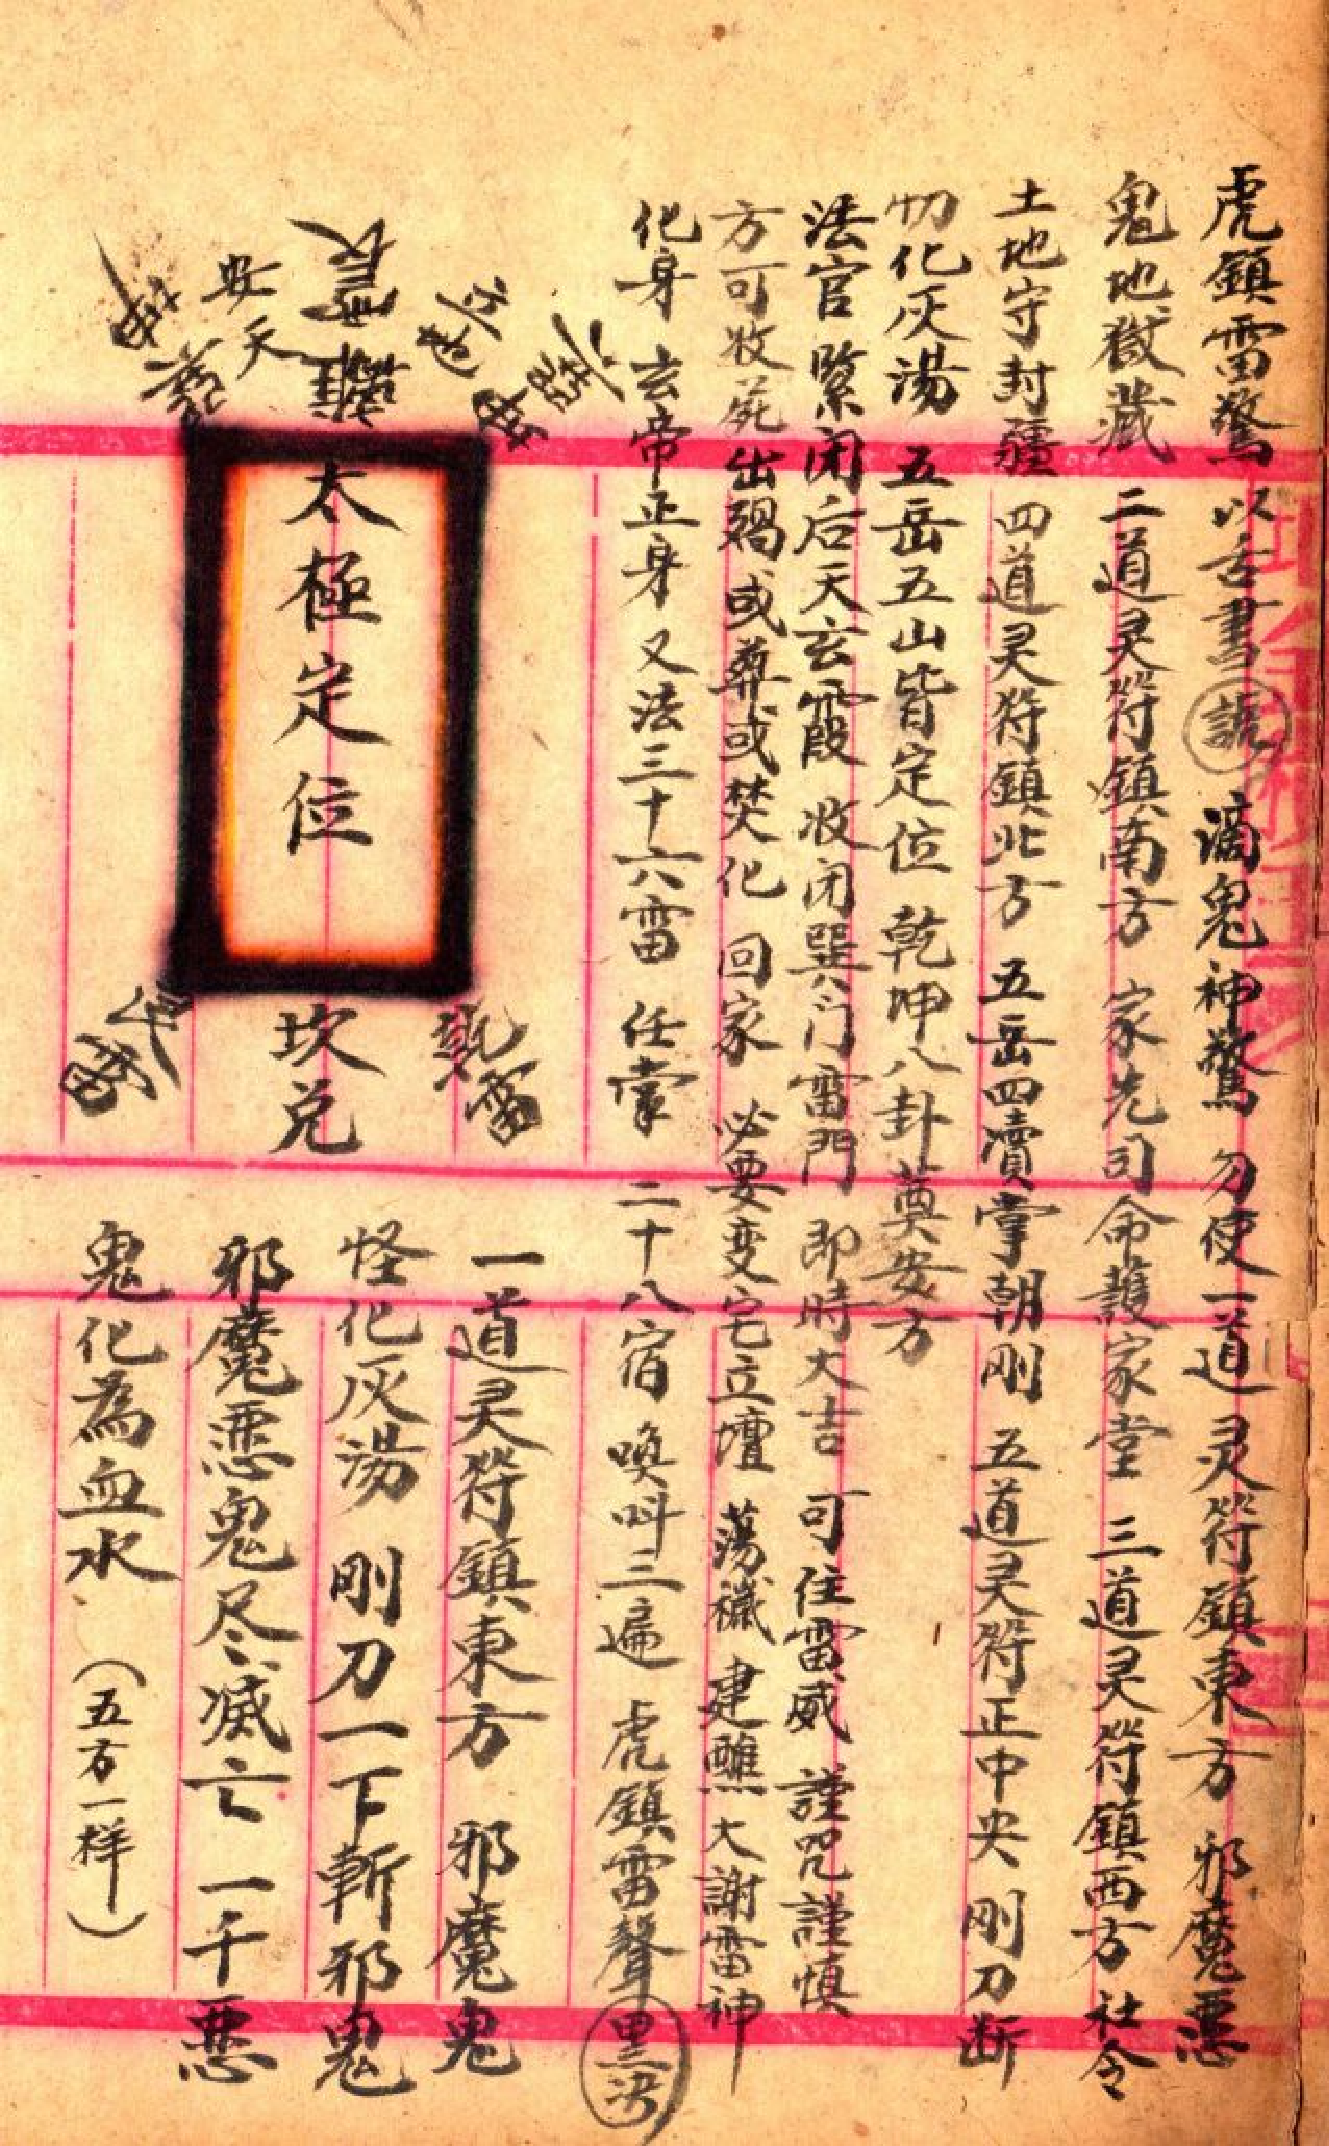 虎鎮雷驚 以舌書 諕 滴鬼神驚 勿使一道灵符鎮東方 邪魔惡
鬼地獄藏 二道灵符鎮南方 家先司命護家堂 三道灵符鎮西方 社令
土地守封疆 四道灵符鎮北方 五岳四瀆掌朝剛 五道灵符正中央 剛刀断
切化灰湯 五岳五山皆定位 乾坤八卦奠安方
法官緊闭后天玄霞 收闭巽门雷門 即時大吉 可住雷威 謹咒謹慎
方可收 出 或葬或焚化 回家 必要变宅立壇 蕩穢 建醮大謝雷神
化身 玄帝正身 又法三十六雷 任掌 二十八宿 喚呌三遍 虎鎮雷聲
太極定位
坎兑
乾雷
一道灵符鎮東方 邪魔鬼
怪化灰湯 剛刀一下斬邪鬼
邪魔惡鬼尽滅亡 一千惡
鬼化為血水 （五方一样）